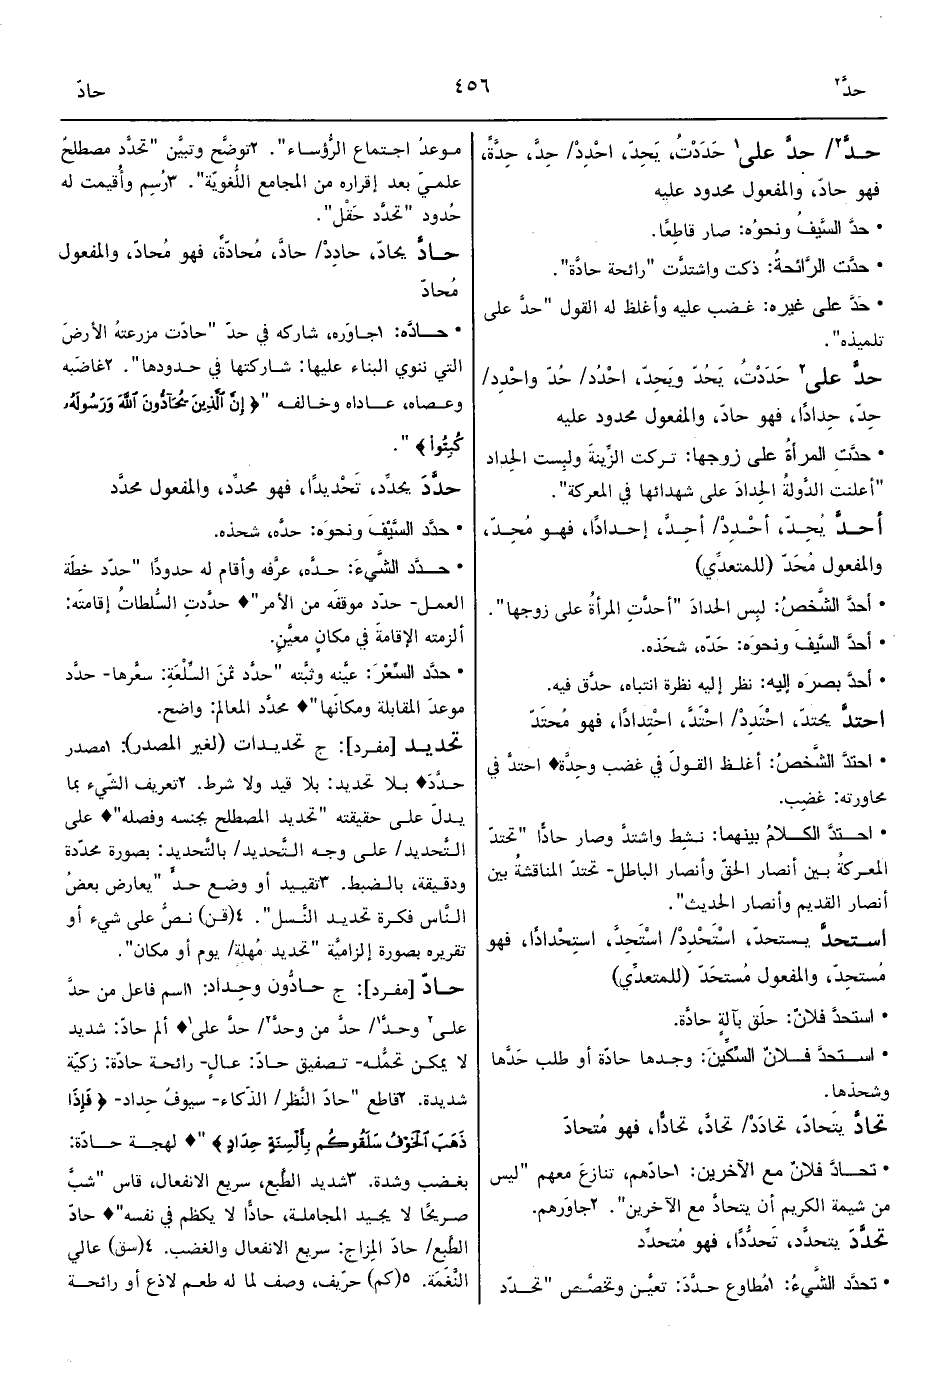 حدَّ٢
٤٥٦
حادّ
حـدَّ٢/ حدَّ على١ حَدَدْتُ، يَحِدّ، احْدِدْ/ حِدَّ، حِدَّةً،
فهو حادّ، والمفعول محدود عليه
• حدَّ السَّيفُ ونحوُه: صار قاطعًا.
• حدَّت الرَّائحةُ: ذكت واشتدَّت "رائحة حادَّة".
• حَدَّ على غيره: غضب عليه وأغلظ له القول "حدَّ على
تلميذه".
حدَّ على٢ حَدَدْتُ، يَحُدّ ويَحِدّ، احْدُد/ حُدّ واحْدِد/
حِدّ، حِدادًا، فهو حادّ، والمفعول محدود عليه
• حدَّتِ المرأةُ على زوجها: تركت الزِّينةَ ولبِست الحِداد
"أعلنت الدَّولةُ الحِدادَ على شهدائها في المعركة".
أحـدَّ يُحِدّ، أَحْدِدْ/ أَحِدَّ، إحدادًا، فهـو مُحِدّ،
والمفعول مُحَدّ (للمتعدِّي)
• أحدَّ الشَّخصُ: لبِس الحدادَ "أحدَّتِ المرأةُ على زوجها".
• أحدَّ السَّيفَ ونحوَه: حَدّه، شحَذه.
• أحدَّ بصرَه إليه: نظر إليه نظرة انتباه، حدَّق فيه.
احتدَّ يحتدّ، احْتَدِدْ/ احْتَدَّ، احْتِدادًا، فهو مُحتَدّ
• احتدَّ الشَّخصُ: أغلـظ القـولَ في غضب وحِدَّة♦ احتدَّ في
محاورته: غضِب.
• احـتدَّ الكـلامُ بينهما: نشِط واشتدَّ وصار حادًّا "تحتدّ
المعركةُ بـين أنصار الحقّ وأنصار الباطل- تحتدّ المناقشةُ بين
أنصار القديم وأنصار الحديث".
اسـتحدَّ يـستحدّ، اسْتَحْدِدْ/ اسْتَحِدَّ، استِحْدادًا، فهو
مُستحِدّ، والمفعول مُستحَدّ (للمتعدِّي)
• استحدَّ فلانٌ: حلَق بآلةٍ حادَّة.
• اسـتحدَّ فـلانٌ السِّكِّينَ: وجـدها حادَّة أو طلب حَدَّها
وشحذها.
تحادَّ يتَحادّ، تحادَدْ/ تحادَّ، تحادًّا، فهو مُتحادّ
• تحـادَّ فلانٌ مع الآخرين: ١حادّهم، تنازعَ معهم "ليس
من شيمة الكريم أن يتحادَّ مع الآخرين". ٢جاورَهم.
تحدَّدَ يتحدَّد، تَحدُّدًا، فهو مُتحدِّد
• تحدَّد الشَّيءُ: ١مُطاوع حـدَّدَ: تعيَّن وتخصَّص "تحـدّد
مـوعدُ اجـتماع الرُّؤسـاء". ٢توضَّح وتبيَّن "تحدَّد مصطلحٌ
علمـيّ بعد إقراره من المجامع اللُّغويّة". ٣رُسِم وأُقيمت له
حُدود "تحدَّد حَقْل".
حـادَّ يحادّ، حادِدْ/ حادَّ، مُحادّةً، فهو مُحادّ، والمفعول
مُحادّ
• حـادَّه: ١جاوَره، شاركه في حدّ "حادَّت مزرعتهُ الأرضَ
التي ننوي البناء عليها: شاركتها في حـدودها". ٢غاضَبه
وعـصاه، عـاداه وخـالفـه "﴿ إِنَّ ٱلَّذِينَ يُحَآدُّونَ ٱللَّهَ وَرَسُولَهُۥ
كُبِتُواْ ﴾ ".
حدَّدَ يحدِّد، تَحْديدًا، فهو محدِّد، والمفعول محدَّد
• حدَّد السَّيْفَ ونحوَه: حدَّه، شحذه.
• حـدَّد الشَّيءَ: حـدّه، عرَّفه وأقام له حدودًا "حدّد خطّة
العمـل- حدّد موقفَه من الأمر"♦ حدَّدتِ السُّلطاتُ إقامتَه:
ألزمته الإقامةَ في مكانٍ معيَّنٍ.
• حدَّد السِّعْرَ: عيَّنه وثبَّته "حدَّد ثمنَ السِّلْعَةِ: سعَّرها- حدَّد
موعدَ المقابلة ومكانَها"♦ محدَّد المعالم: واضح.
تحْديـد [مفـرد]: ج تحديـدات (لغير المصدر): ١مصدر
حدَّدَ♦ بـلا تحديد: بلا قيد ولا شرط. ٢تعريف الشَّيء بما
يـدلّ علـى حقيقته "تحديد المصطلح بجنسه وفصله"♦ على
التَّحديد/ علـى وجـه التَّـحديد/ بالتَّحديد: بصورة محدّدة
ودقيقة، بالضبط. ٣تقييد أو وضع حدّ "يعارض بعضُ
النَّاس فكرة تحديد النَّسل". ٤(قن) نصّ على شيء أو
تقريره بصورة إلزاميَّة "تحديد مُهلة/ يوم أو مكان".
حـادّ [مفـرد]: ج حـادُّون وحِـداد: ١اسم فاعل من حدَّ
علـى٢ وحـدَّ١/ حدَّ من وحدَّ٢/ حدَّ على١♦ ألم حادّ: شديد
لا يمكن تحمُّله- تصفيق حـادّ: عـالٍ- رائحة حادّة: زكيّة
شديدة. ٢قاطع "حادّ النَّظر/ الذَّكاء- سيوفٌ حِداد- ﴿ فَإِذَا
ذَهَبَ ٱلْخَوْفُ سَلَقُوكُم بِأَلْسِنَةٍ حِدَادٍ ﴾ "♦ لهجـة حـادّة:
بغـضب وشدة. ٣شديد الطَّبع، سريع الانفعال، قاس "شبَّ
صـريحًا لا يجـيد المجاملـة، حادًّا لا يكظم في نفسه"♦ حادّ
الطَّبع/ حادّ المِزاج: سريع الانفعال والغضب. ٤(سق) عالي
النَّغَمَة. ٥(كم) حرِّيف، وصف لما له طعـم لاذع أو رائحـة